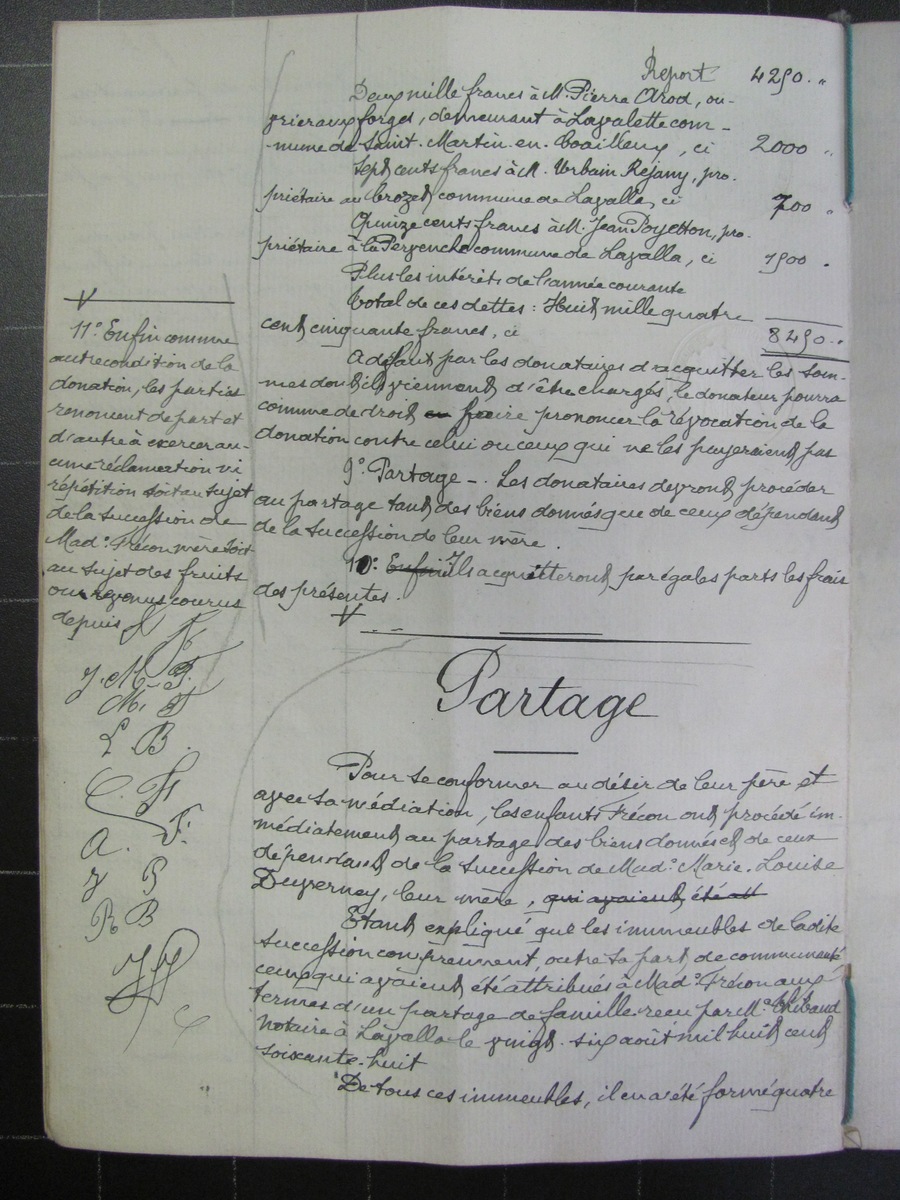 Report 4250. "
Deux mille francs à M. Pierre Arod, ou-
vrier aux forges, demeurant à Lavalette com-
-mune de Saint-Martin-en-Coailleux, ci 2000 "
Sept cents francs à M. Urbain Rejany, pro-
priétaire au Crozet commune de Lavalla, ci 700 "
Quinze cents francs à M. Jean Poyetton, pro-
priétaire à la Pervenche commune de Lavalla, ci 1500 "
Plus les intérêts de l'année courante
Total de ces dettes : Huit mille quatre
cent cinquante francs, ci 8450. "
A défaut par les donataires d'acquitter les som-
mes dont ils viennent d'être chargés, le donateur pourra
comme de droit en faire prononcer la révocation de la
donation contre celui ou ceux qui ne les payeraient pas
9°. Partage -. Les donataires devront procéder
au partage tant des biens donnés que de ceux dépendant
de la succession de leur mère.
10°. Enfin Ils acquitteront par égales parts les frais
des présentes.
V
V
11°. Enfin comme
autre condition de la
donation, les parties
renoncent de part et
d'autre à exercer au-
cune réclamation ni
répétition soit au sujet
de la succession de
Mad°. Frécon mère soit
au sujet des fruits
ou revenus courus
depuis
J. M. F.
M. F
L. B.
C. F
A. F.
J P
R B
Partage
Pour se conformer au désir de leur père et
avec sa médiation, les enfants Frécon ont procédé im-
médiatement au partage des biens donnés et de ceux
dépendant de la succession de Mad°. Marie-Louise
Duverney, leur mère, qui avaient été att
Etant expliqué que les immeubles de ladite
succession comprennent, outre sa part de communauté
ceux qui avaient été attribués à Mad°. Frécon aux
termes d'un partage de famille reçu par M°. Thibaud
notaire à Lavalla le vingt-six août mil huit cent
soixante-huit
De tous ces immeubles, il en a été formé quatre